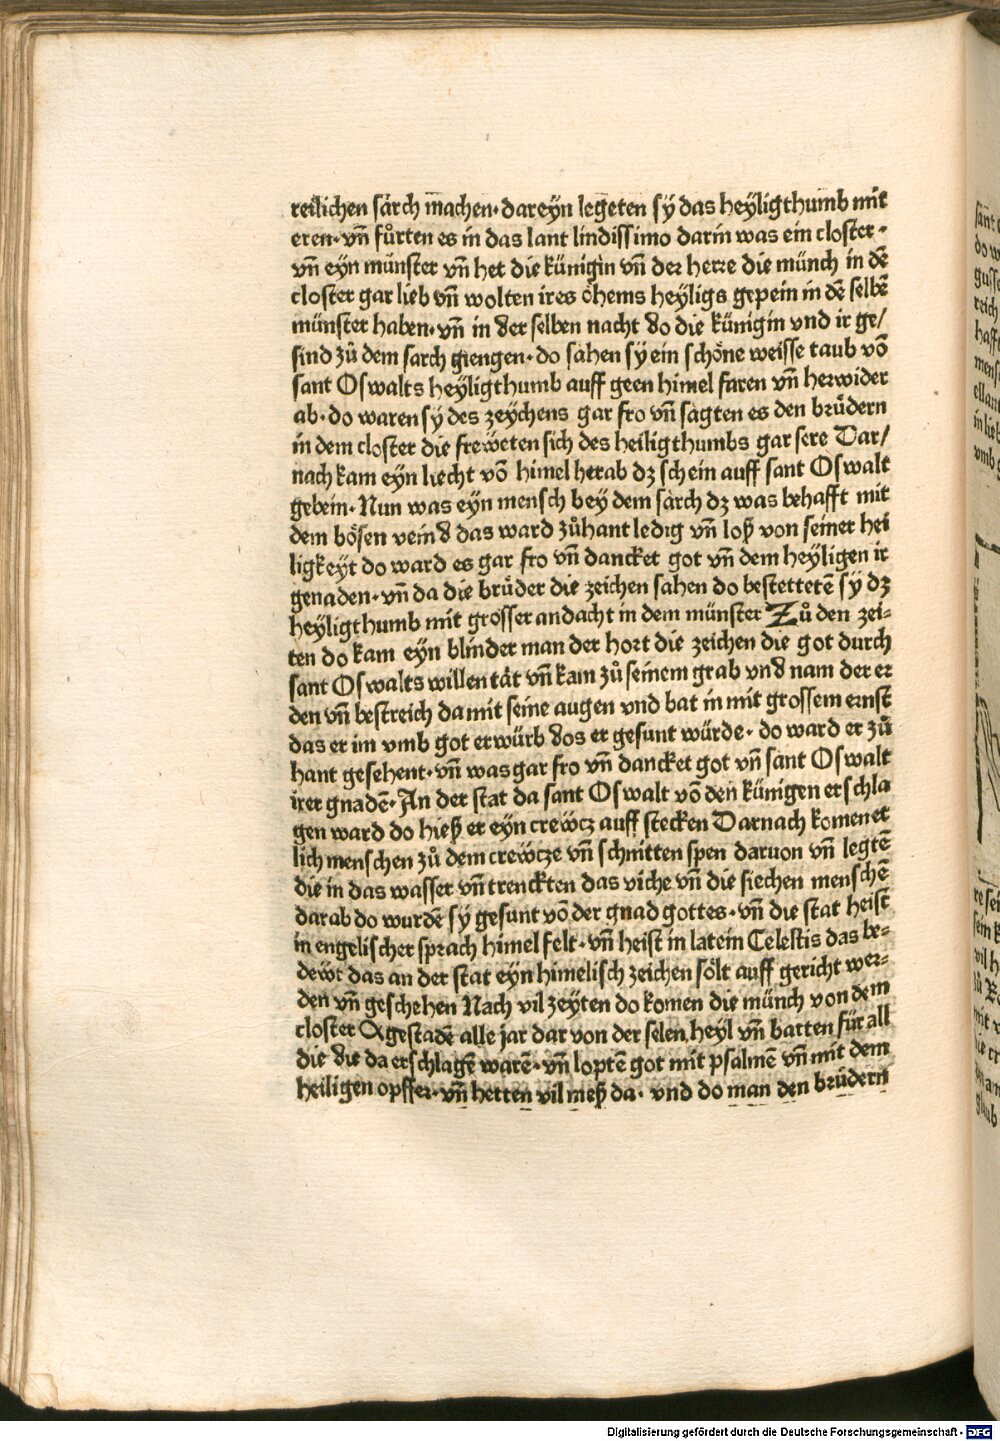 reilichen sarch machen· dareyn legeten sÿ das heÿligthumb mit
eren· vn̄ fůrten es in das lant lindissimo darin was ein closter ·
vn̄ eÿn münster vn̄ het die künigin vn̄ der herre die münch in dē
closter gar lieb vn̄ wolten ires öhems heÿligs gepein in dē selbē
münster haben· vn̄ in der selben nacht do die künigin vnd ir ge/
sind zů dem sarch giengen· do sahen sÿ ein schöne weisse taub vō
sant Oswalts heÿligthumb auff geen himel faren vn̄ herwider
ab· do waren sÿ des zeÿchens gar fro vn̄ sagten es den brüdern
in dem closter die freẅeten sich des heiligthumbs gar sere Dar/
nach kam eÿn liecht vō himel herab dz schein auff sant Oswalt
gebein· Nun was eÿn mensch beÿ dem sarch dz was behafft mit
dem bösen veind das ward zůhant ledig vn̄ loß von seiner hei
ligkeÿt do ward es gar fro vn̄ dancket got vn̄ dem heÿligen ir
genaden· vn̄ da die brüder die zeichen sahen do bestettetē sÿ dz
heÿligthumb mit grosser andacht in dem münster Zů den zei-
ten do kam eÿn blinder man der hort die zeichen die got durch
sant Oswalts willen tät vn̄ kam zů seinem grab vnd nam der er
den vn̄ bestreich da mit seine augen vnd bat in mit grossem ernst
das er im vmb got erwürb dos er gesunt würde· do ward er zů
hant gesehent· vn̄ was gar fro vn̄ dancket got vn̄ sant Oswalt
irer gnadē· An der stat da sant Oswalt vō den künigen erschla
gen ward do hieß er eÿn creẅcz auff stecken Darnach komen et
lich menschen zů dem creẅcze vn̄ schnitten spen daruon vn̄ legtē
die in das wasser vn̄ trenckten das viche vn̄ die siechen menschē
darab do wurdē sÿ gesunt vō der gnad gottes· vn̄ die stat heist
in engelischer sprach himel felt· vn̄ heist in latein Celestis das be-
deẅt das an der stat eÿn himelisch zeichen sölt auff gericht wer-
den vn̄ geschehen Nach vil zeÿten do komen die münch von dem
closter Agestadē alle jar dar von der selen heyl vn̄ batten für all
die die da erschlagē warē· vn̄ loptē got mit psalmē vn̄ mit dem
heiligen opffer· vn̄ hetten vil meß da· vnd do man den brüdern
Digitalisierung gefördert durch die Deutsche Forschungsgemeinschaft - DFG